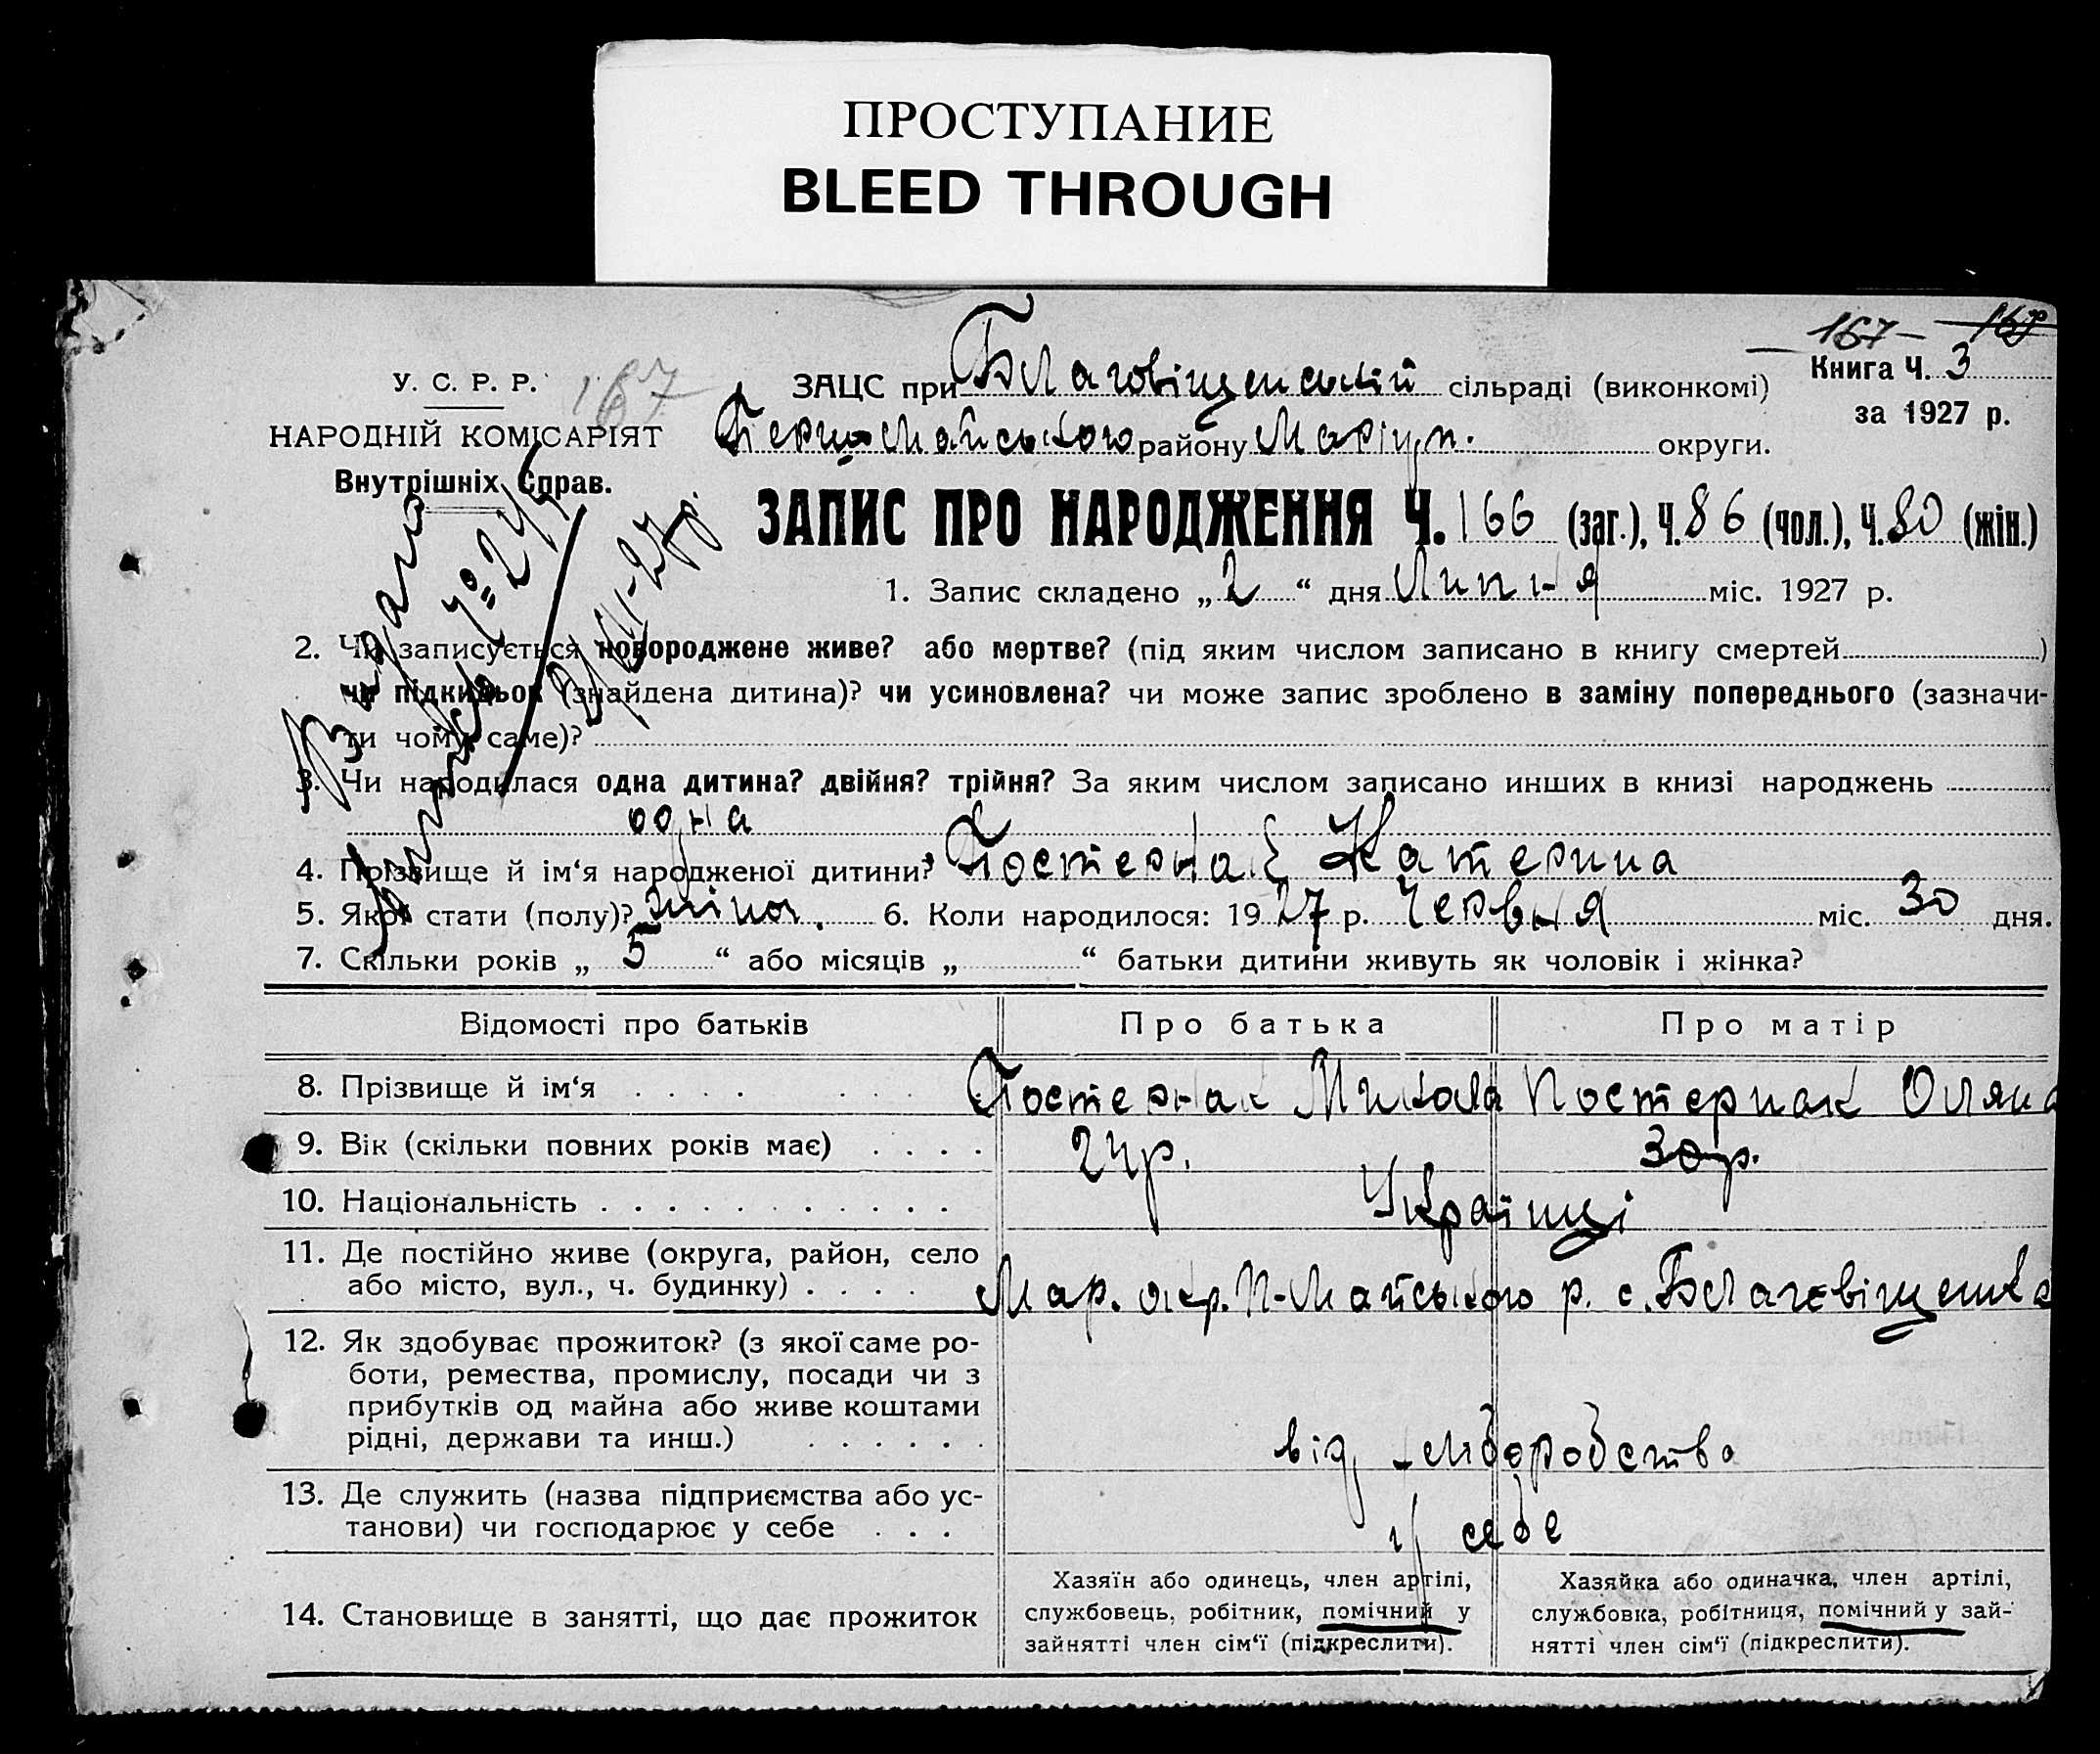 ПРОСТУПАНИЕ
BLEED THROUGH
167 – 167
У. С. Р. Р. 167
ЗАЦС при Благовіщенській сільраді (виконкомі) Книга Ч. 3
НАРОДНІЙ КОМІСАРІЯТ Першомайського району Маріуп. округи. за 1927 р.
Внутрішніх Справ.
ЗАПИС ПРО НАРОДЖЕННЯ Ч. 166 (заг.), Ч. 86 (чол.), Ч. 80 (жін.)
1. Запис складено „ 2 “ дня Липня міс. 1927 р.
2. Чи записується новороджене живе? або мертве? (під яким числом записано в книгу смертей )
чи підкидьок (знайдена дитина)? чи усиновлена? чи може запис зроблено в заміну попереднього (зазначи-
ти чому саме)?
3. Чи народилася одна дитина? двійня? трійня? За яким числом записано инших в книзі народжень
одна
4. Прізвище й ім‘я народженої дитини? Постернак Катерина
5. Якої стати (полу)? жіноч. 6. Коли народилося: 1927 р. Червня міс. 30 дня.
7. Скільки років „ 5 “ або місяців „ “ батьки дитини живуть як чоловік і жінка?
Відомості про батьків Про батька Про матір
8. Прізвище й ім‘я Постернак Микола Постернак Оляна
9. Вік (скільки повних років має) 24 р. 30 р.
10. Національність Українці
11. Де постійно живе (округа, район, село
або місто, вул., ч. будинку) Мар. окр. П-Майського р. с. Благовіщенка
12. Як здобуває прожиток? (з якої саме ро-
боти, ремества, промислу, посади чи з
прибутків од майна або живе коштами
рідні, держави та инш.) від хліборобства
13. Де служить (назва підприємства або ус-
танови) чи господарює у себе у себе
14. Становище в занятті, що дає прожиток
Хазяїн або одинець, член артілі,
службовець, робітник, помічний у
зайнятті член сім‘ї (підкреслити).
Хазяйка або одиначка, член артілі,
службовка, робітниця, помічний у зай-
нятті член сім‘ї (підкреслити).